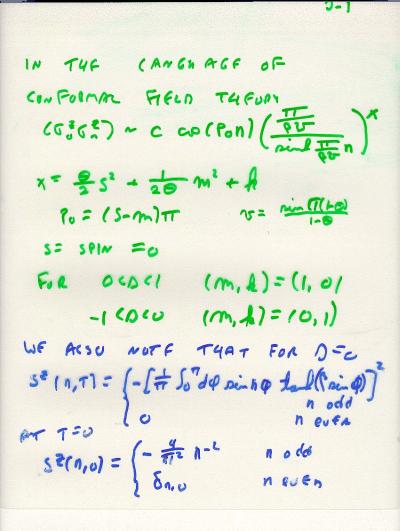 J-1
IN THE LANGUAGE OF
CONFORMAL FIELD THEORY
⟨σ₀ᶻσₙᶻ⟩ ~ C cos(P₀n) (π/βv / sinh π/βv n)ˣ
x = Θ/2 s² + 1/2Θ m² + k
P₀ = (s-m)π v = sin(π(1-Θ))/1-Θ
s = SPIN = 0
FOR 0<Δ<1 (m,k) = (1,0)
-1<Δ<0 (m,k) = (0,1)
WE ALSO NOTE THAT FOR Δ=0
Sᶻ(n,T) = { -[1/π ∫₀^π dφ sin nφ tanh(β sin φ)]² n odd
0 n even
AT T=0
Sᶻ(n,0) = { -4/π² n⁻² n odd
δₙ,₀ n even